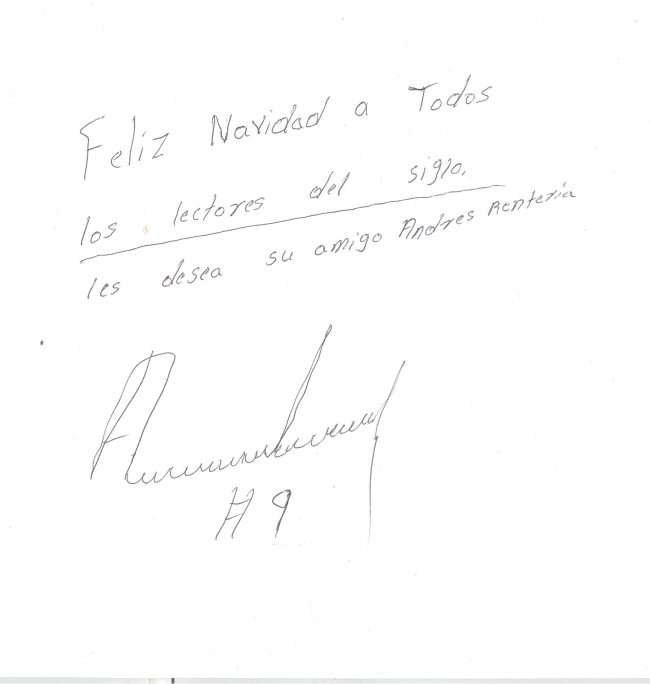 Feliz Navidad a Todos
los lectores del siglo.
les desea su amigo Andres Renteria
# 9